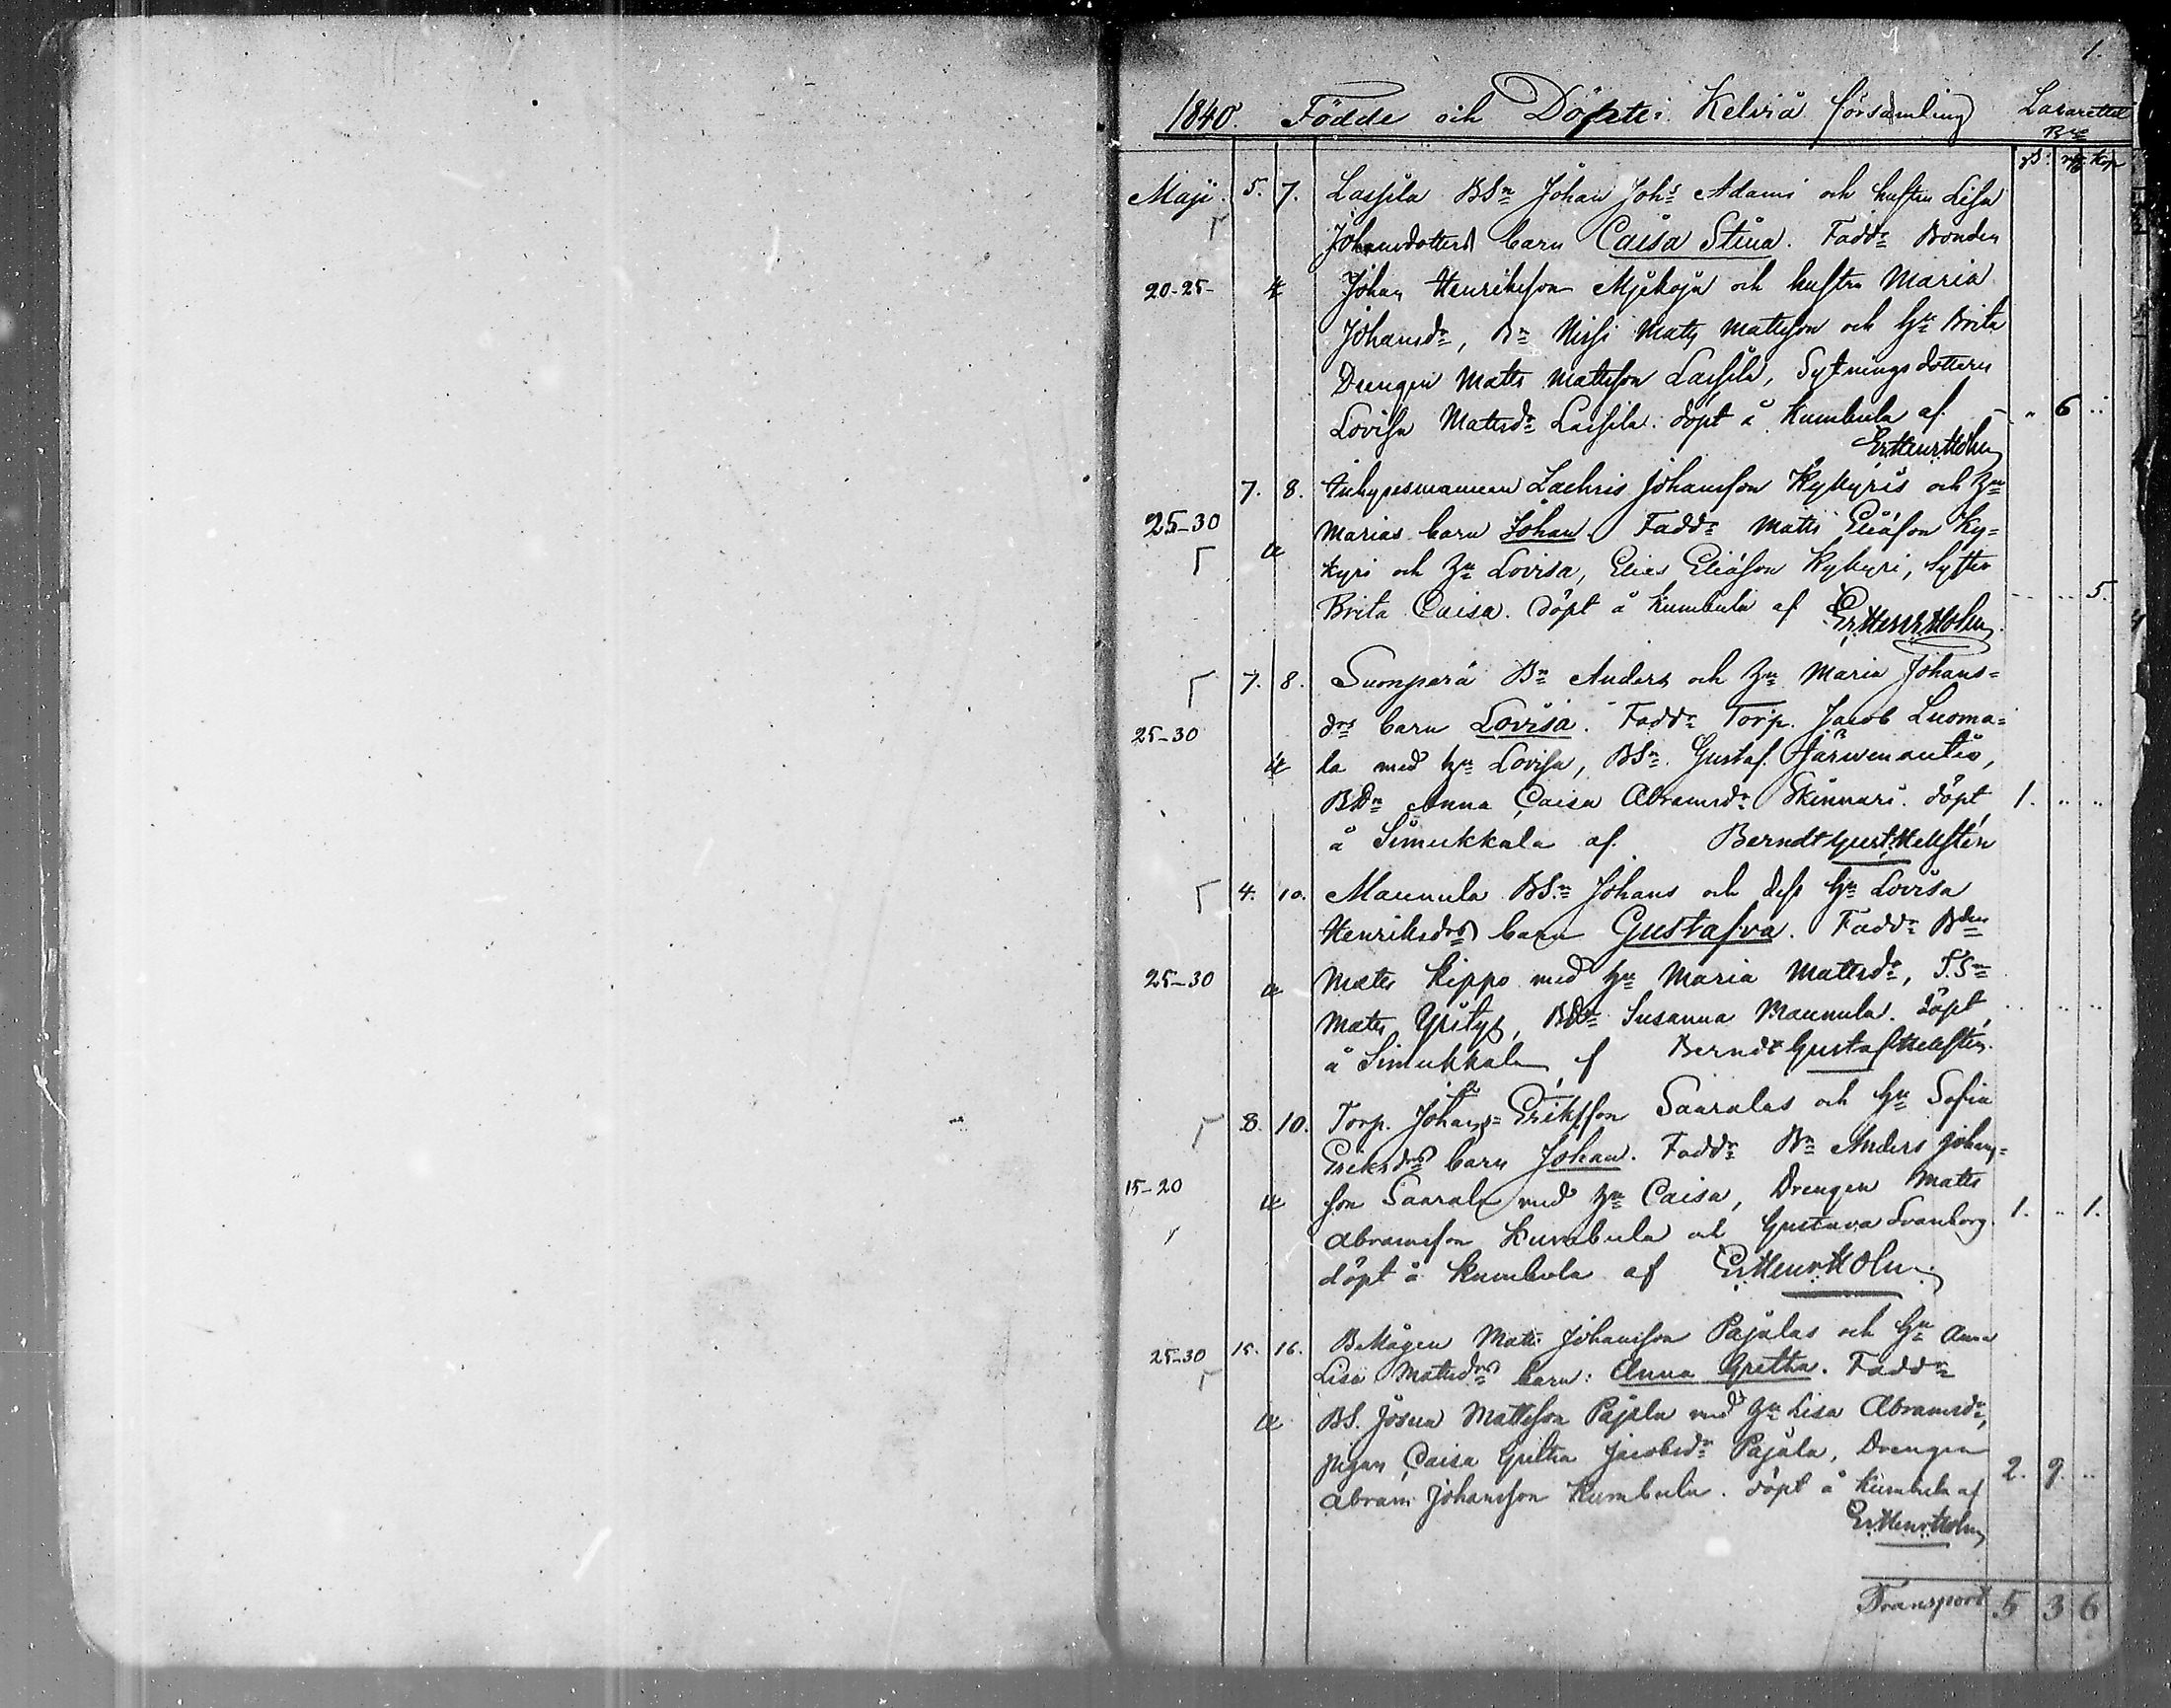 1.
1840. Födde och Döpte i Kelviå församling Lazarettet
Maji. 5. 7. Lassila BSn Johan Johs Adami och hustru Lisa
Johansdotters barn Caisa Stina. Fadd: Bonden
20-25- Johan Henriksson och hustru Maria
Johansdr, Bn Nissi Matts Mattsson och Hu Brita
Drengen Matts Mattsson Lassila, Sytningsdottern
Lovisa Mattsdr Lassila. döpt å Kumbula af - " 6 ..
Er. Henr. Holm
7. 8. Inhysesmannen Zachris Johansson Kykyris och Hu
25-30 Marias barn Johan. Fadd: Matts Eliasson Ky=
kyri och Hu Lovisa, Elias Eliasson Kykyri,
Brita Caisa. döpt å Kumbula af Er. Henr. Holm .. .. 5.
7. 8. Suonperä Bn Anders och Hu Maria Johans=
25-30 drs barn Lovisa. Fadd: Torp. Jacob Luoma=
la med Hu Lovisa, BSn Gustaf
BDn Anna Caisa Abramsdr Skinnari. döpt 1. .. ..
å Simukkala af Berndt Gust. Hellsten
4. 10. Maunula BSn Johans och dess Hu Lovisa
Henriksdrs barn Gustafva. Fadd: Bden
25-30 Matts Kippo med Hu Maria Mattsdr, T.Sn
Matts BDtr Susanna Maunula. döpt .. .. ..
å Simukkala af Berndt Gustaf Hellsten.
8. 10. Torp. Johan Eriksson Saaralas och Hu Sofia
Eriksdrs barn Johan. Fadd: Bn Anders Johans=
15-20 son Saarala med Hu Caisa, Drengen Matts
Abramsson Kumbula och Gustava Svanborg. 1. .. 1.
döpt å Kumbula af Er. Henr. Holm.
25-30 15. 16. BMågen Matts Johansson Pajalas och Hu Anna
Lisa Mattsdrs barn: Anna Gretha. Faddr
BS. Josua Mattsson Pajala med Hu Lisa Abramsdr,
pigan Caisa Gretha Jacobsdr Pajala, Drengen
Abram Johansson Kumbula. döpt å Kumbula af 2. 9. ..
Er. Henr. Holm
Transport 5 3 6